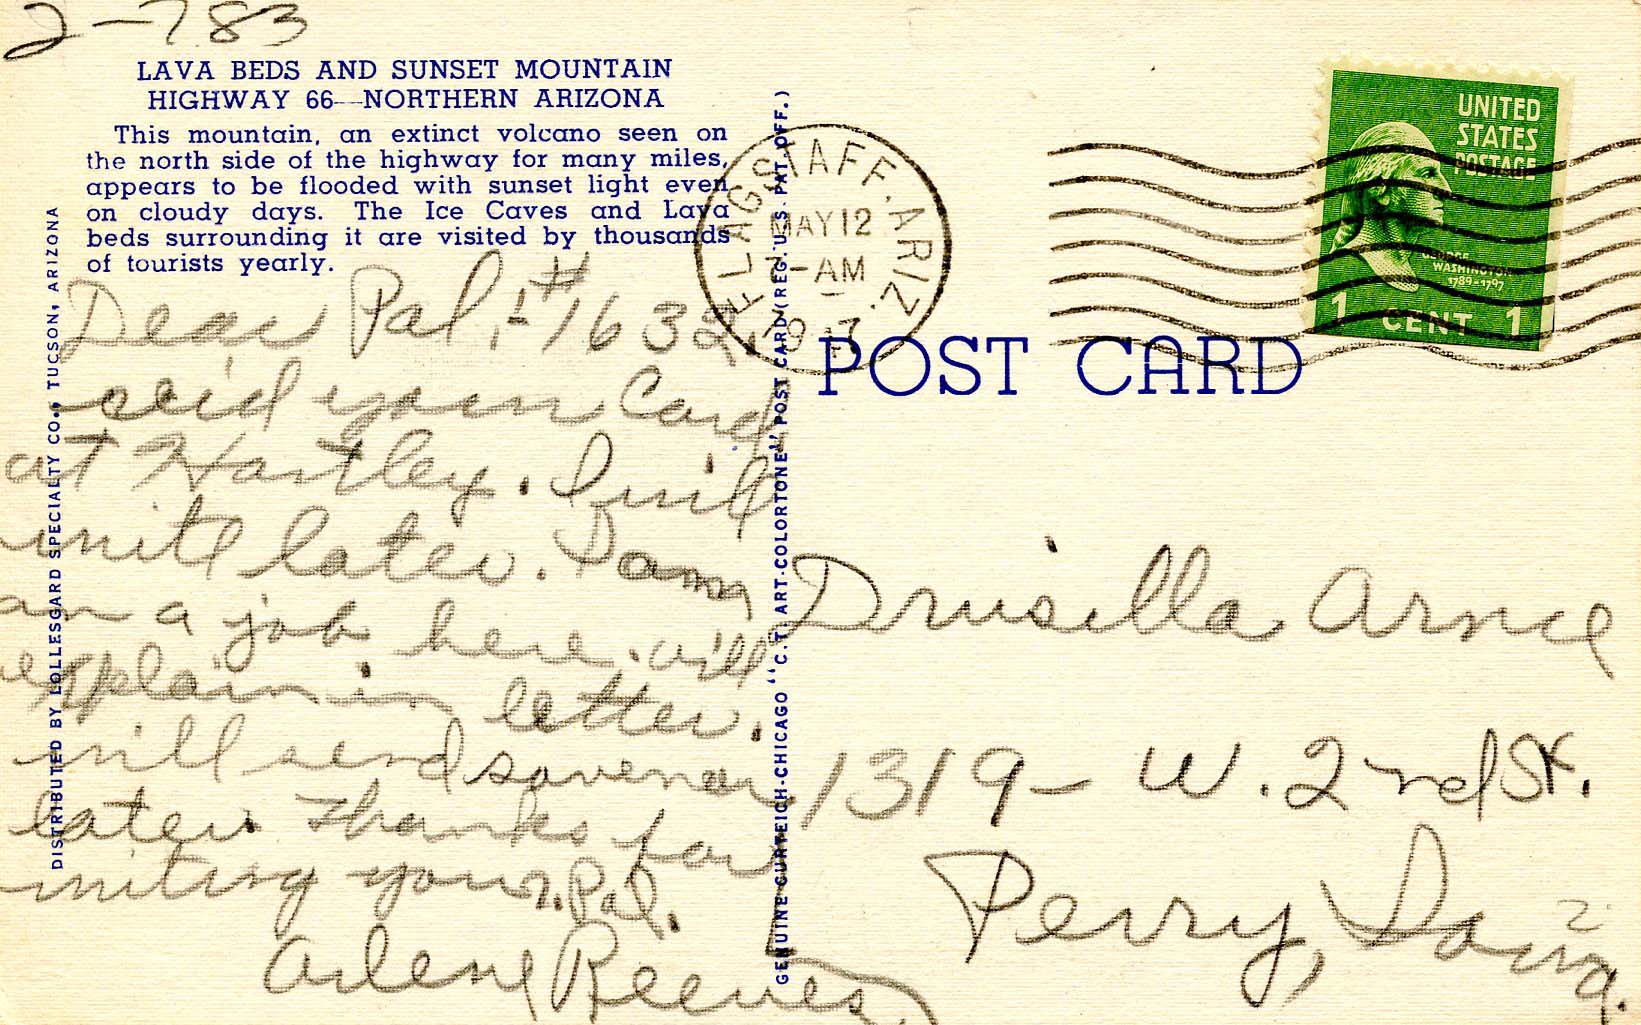 2-783
LAVA BEDS AND SUNSET MOUNTAIN
HIGHWAY 66—NORTHERN ARIZONA
This mountain, an extinct volcano seen on
the north side of the highway for many miles,
appears to be flooded with sunset light even
on cloudy days. The Ice Caves and Lava
beds surrounding it are visited by thousands
of tourists yearly.
Dear Pal, #1632.
recid your Card
at Hartley. I will
write later. I am
on a job here. will
explain in letter.
will send
later. Thanks for
writing your. Pal.
Arlene Reeves.
DISTRIBUTED BY LOLLESGARD SPECIALTY CO., TUCSON, ARIZONA
GENUINE CURTEICH-CHICAGO "C.T. ART-COLORTONE" POST CARD (REG. U.S. PAT. OFF.)
FLAGSTAFF. ARIZ.
MAY 12
-AM
UNITED
STATES
POSTAGE
GEORGE
WASHINGTON
1789-1797
1 CENT 1
POST CARD
Drusilla Arnce
1319- W. 2nd St.
Perry, Iowa.